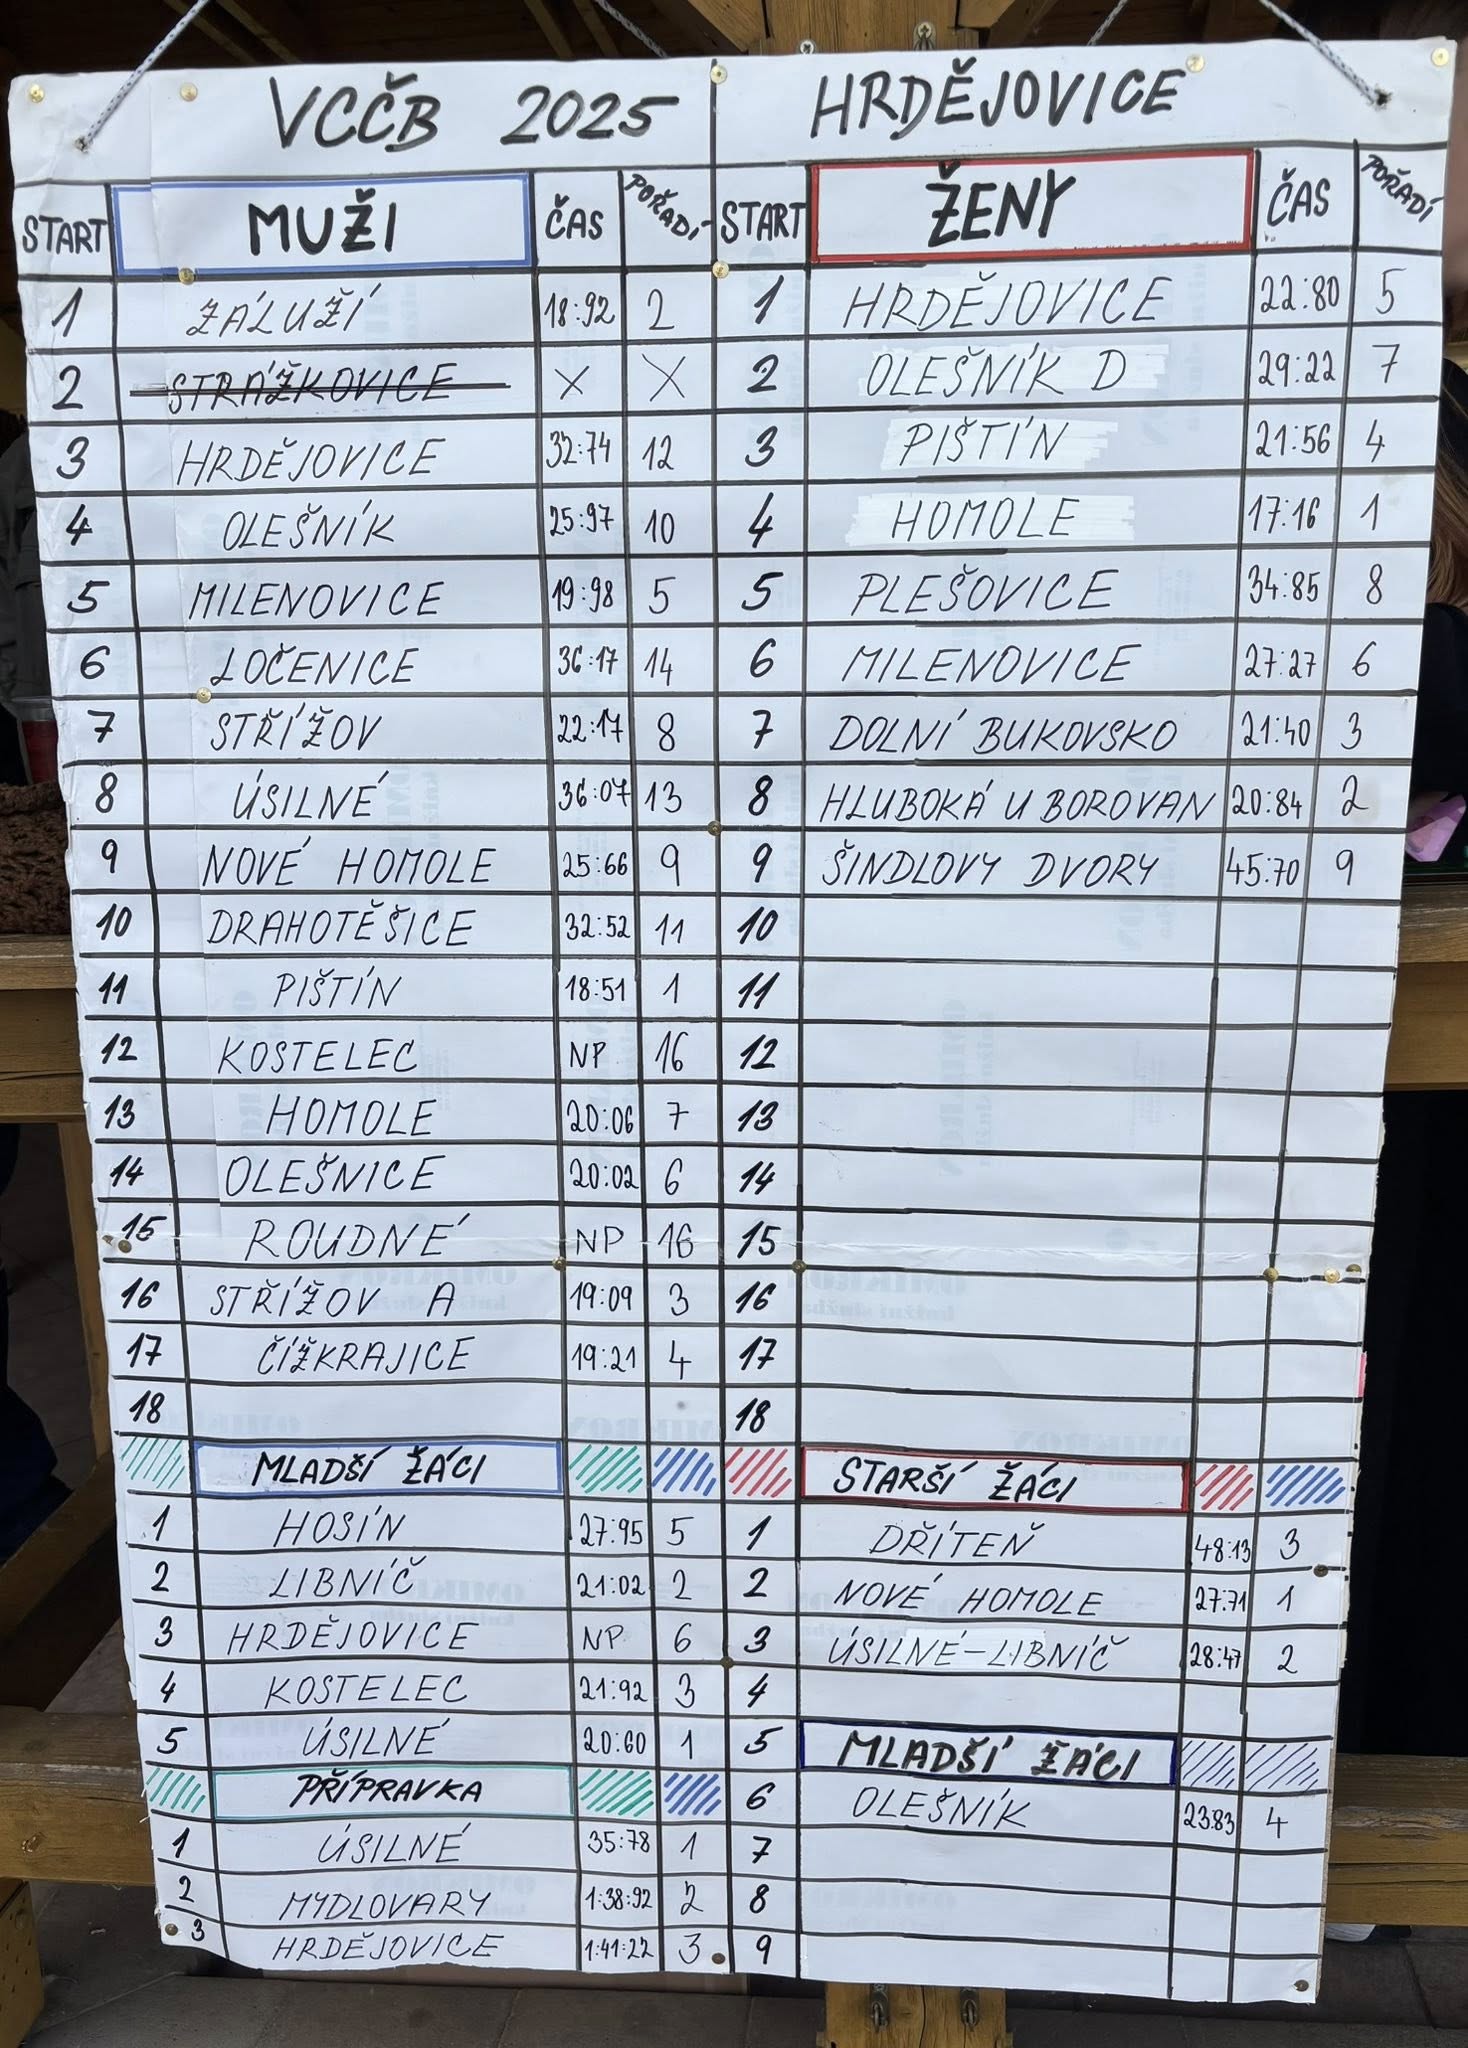 VCČB 2025 HRDĚJOVICE
START MUŽI ČAS POŘADÍ START ŽENY ČAS POŘADÍ
1 ZÁLUŽÍ 18:92 2 1 HRDĚJOVICE 22:80 5
2 STRÁŽKOVICE X X 2 OLEŠNÍK D 29:22 7
3 HRDĚJOVICE 32:74 12 3 PIŠTÍN 21:56 4
4 OLEŠNÍK 25:97 10 4 HOMOLE 17:16 1
5 MILENOVICE 19:98 5 5 PLEŠOVICE 34:85 8
6 LOČENICE 36:17 14 6 MILENOVICE 27:27 6
7 STŘÍŽOV 22:17 8 7 DOLNÍ BUKOVSKO 21:40 3
8 ÚSILNÉ 36:07 13 8 HLUBOKÁ U BOROVAN 20:84 2
9 NOVÉ HOMOLE 25:66 9 9 ŠINDLOVY DVORY 45:70 9
10 DRAHOTĚŠICE 32:52 11 10
11 PIŠTÍN 18:51 1 11
12 KOSTELEC NP. 16 12
13 HOMOLE 20:06 7 13
14 OLEŠNICE 20:02 6 14
15 ROUDNÉ NP 16 15
16 STŘÍŽOV A 19:09 3 16
17 ČÍŽKRAJICE 19:21 4 17
18 18
MLADŠÍ ŽÁCI STARŠÍ ŽÁCI
1 HOSÍN 27:95 5 1 DŘÍTEŇ 48:13 3
2 LIBNÍČ 21:02 2 2 NOVÉ HOMOLE 27:71 1
3 HRDĚJOVICE NP. 6 3 ÚSILNÉ-LIBNÍČ 28:47 2
4 KOSTELEC 21:92 3 4
5 ÚSILNÉ 20:60 1 5 MLADŠÍ ŽÁCI
PŘÍPRAVKA 6 OLEŠNÍK 23:83 4
1 ÚSILNÉ 35:78 1 7
2 MYDLOVARY 1:38:92 2 8
3 HRDĚJOVICE 1:41:22 3 9